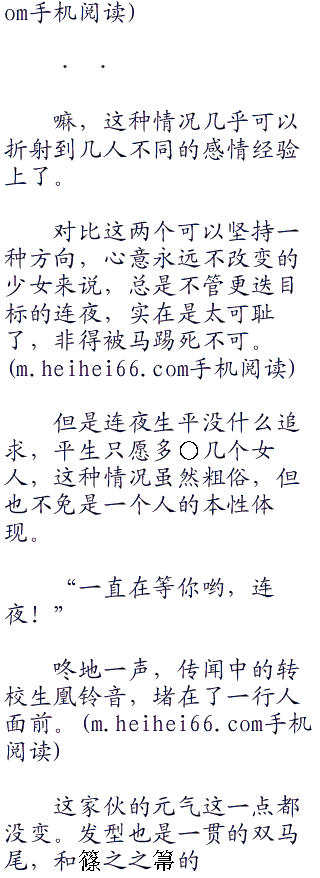 om手机阅读)
· ·
嘛，这种情况几乎可以
折射到几人不同的感情经验
上了。
对比这两个可以坚持一
种方向，心意永远不改变的
少女来说，总是不管更迭目
标的连夜，实在是太可耻
了，非得被马踢死不可。
(m.heihei66.com手机阅读)
但是连夜生平没什么追
求，平生只愿多〇几个女
人，这种情况虽然粗俗，但
也不免是一个人的本性体
现。
“一直在等你哟，连
夜！”
咚地一声，传闻中的转
校生凰铃音，堵在了一行人
面前。(m.heihei66.com手机
阅读)
这家伙的元气这一点都
没变。发型也是一贯的双马
尾，和篠之之箒的